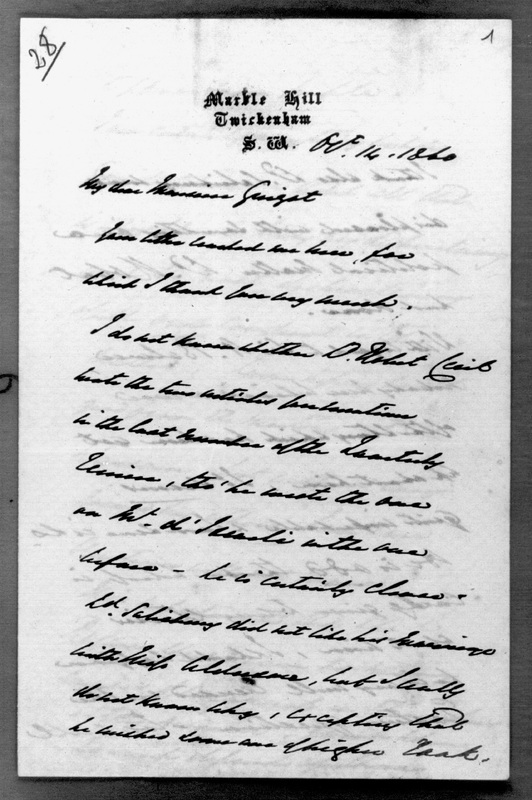 28/
1
Marble Hill
Twickenham
S. W.
Oct. 14. 1860
My dear Monsieur Guizot
Your letter reached me here, for
which I thank you very much.
I do not know whether Ld. Robert Cecil
wrote the two articles you mention
in the last number of the Quarterly
Review, tho' he wrote the one
on Mr. d'Israeli in the one
before – he is certainly clever.
Ld. Salisbury did not like his marriage
with Miss Alderson, but I really
do not know why, excepting that
he wished some one of higher rank.